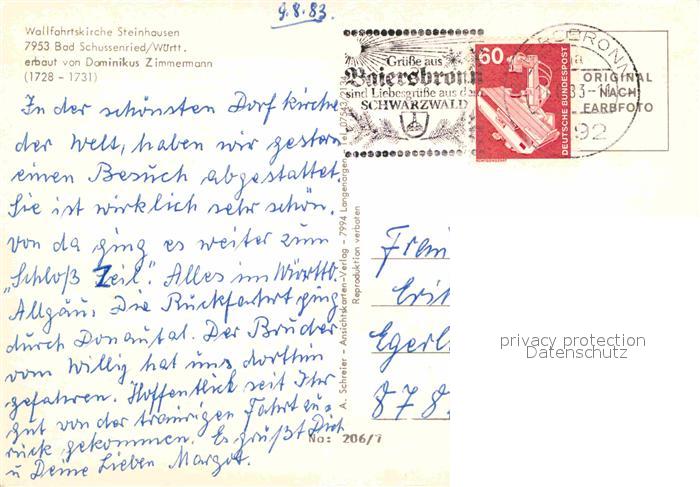 9.8.83.
Wallfahrtskirche Steinhausen
7953 Bad Schussenried/Württ.
erbaut von Dominikus Zimmermann
(1728 – 1731)
In der schönsten Dorfkirche
der Welt, haben wir gestern
einen Besuch abgestattet.
Sie ist wirklich sehr schön.
Von da ging es weiter zum
„Schloß Zeil". Alles im Württb.
Allgäu. Die Rückfahrt ging
durch Donautal. Der Bruder
vom Willig hat uns dorthin
gefahren. Hoffentlich seit Ihr
gut von der traurigen Fahrt zu-
rück gekommen. Es grüßt Dich
u Deine Lieben Margot.
Grüße aus
Baiersbronn
sind Liebesgrüße aus dem
SCHWARZWALD
60
DEUTSCHE BUNDESPOST
83-
92
ORIGINAL
NACH
FARBFOTO
A. Schreier – Ansichtskarten-Verlag – 7994 Langenargen
Reproduktion verboten
No: 206/7
Egerl
878
privacy protection
Datenschutz